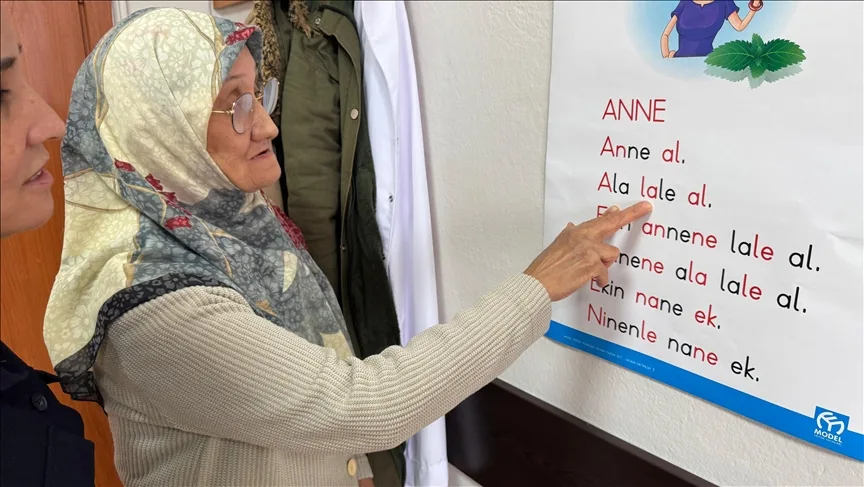 ANNE
Anne al.
Ala lale al.
Ekin annene lale al.
nnene ala lale al.
Ekin nane ek.
Ninenle nane ek.
MODEL